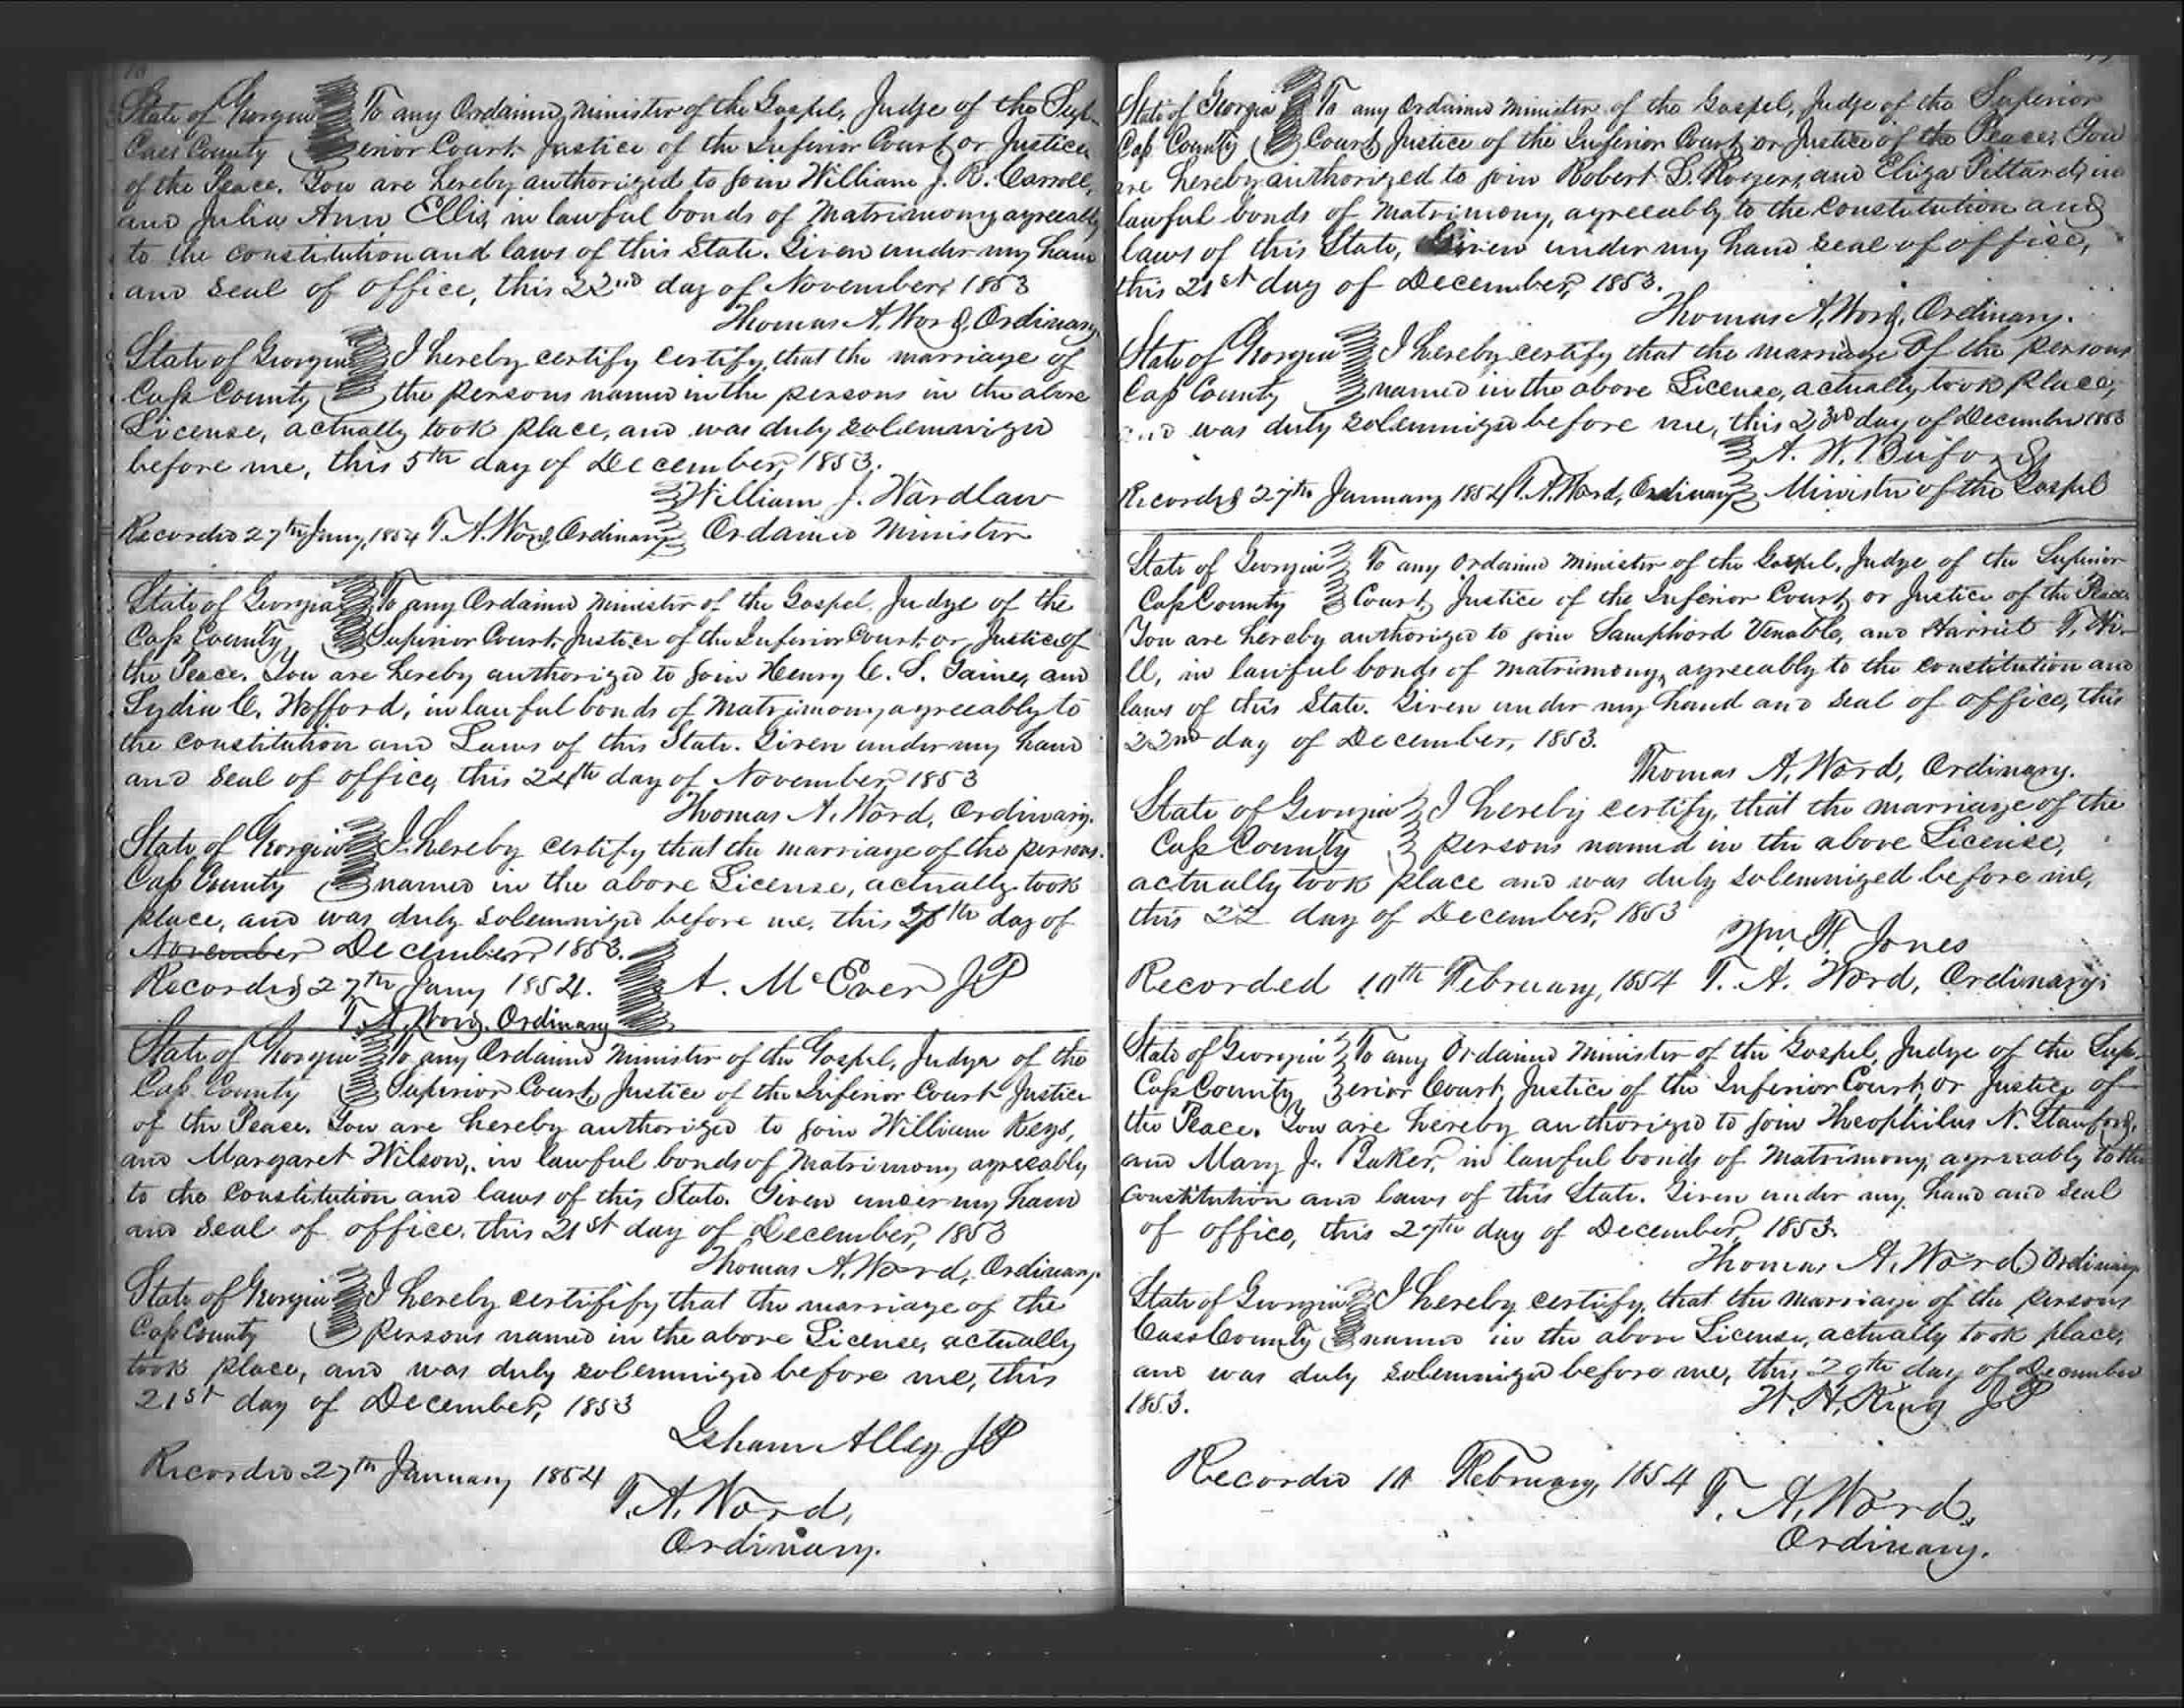 State of Georgia To any Ordained Minister of the Gospel, Judge of the Sup-
Cass County erior Court. Justice of the Inferior Court, or Justice
of the Peace. You are hereby authorized to join William J. R. Carroll,
and Julia Ann Ellis, in lawful bonds of Matrimony agreeably
to the constitution and laws of this State. Given under my hand
and seal of office, this 22nd day of November, 1853
Thomas A. Word, Ordinary
State of Georgia I hereby certify certify, that the marriage of
Cass County the persons named in the persons in the above
License, actually took place, and was duly solemnized
before me, this 5th day of December, 1853.
William J. Wardlaw
Recorded 27th Jany, 1854 T. A. Word, Ordinary Ordained Minister
State of Georgia To any Ordained Minister of the Gospel, Judge of the
Cass County, Superior Court. Justice of the Inferior Court. or, Justice of
the Peace. You are hereby authorized to join Henry C. S. Gaines, and
Lydia C. Wofford, in lawful bonds of Matrimony agreeably to
the constitution and Laws of this State. Given under my hand
and seal of office, this 24th day of November, 1853
Thomas A. Word, Ordinary.
State of Georgia I hereby certify that the marriage of the persons
Cass County named in the above License, actually took
place, and was duly solemnized before me, this th day of
November December, 1853.
Recorded 27th Jany 1854. A. McEver JP
T. A. Word. Ordinary
State of Georgia To any Ordained Minister of the Gospel, Judge of the
Cass County Superior Court, Justice of the Inferior Court Justice
of the Peace. You are hereby authorized to join William Keys,
and Margaret Wilson, in lawful bonds of Matrimony agreeably
to the constitution and laws of this State. Given under my hand
and seal of office. this 21st day of December, 1853
Thomas A. Word, Ordinary.
State of Georgia I hereby certifify that the marriage of the
Cass County persons named in the above License, actually
took place, and was duly solemnized before me, this
21st day of December, 1853
Isham Alley JP
Recorded 27th January 1854
T. A. Word,
Ordinary.
State of Georgia To any Ordained Minister of the Gospel, Judge of the Superior
Cass County Court, Justice of the Inferior Court, or Justice of the Peace. You
are hereby authorized to join Robert L. Rogers, and Eliza Pittard, in
lawful bonds of Matrimony, agreeably to the constitution and
laws of this State, Given under my hand seal of office,
this 21st day of December, 1853.
Thomas A. Word, Ordinary.
State of Georgia I hereby certify that the marriage of the persons
Cass County named in the above License, actually took place,
and was duly solemnized before me, this 23rd day of December 1853
A. W. Buford
Recorded 27th January 1854 T. A. Word, Ordinary Minister of the Gospel
State of Georgia To any Ordained Minister of the Gospel, Judge of the Superior
Cass County Court, Justice of the Inferior Court, or Justice of the Peace
You are hereby authorized to join Samphord Venable, and Harriet T. Hi-
ll, in lawful bonds of matrimony, agreeably to the constitution and
laws of this State. Given under my hand and seal of office, this
22nd day of December, 1853.
Thomas A. Word, Ordinary.
State of Georgia I hereby certify, that the marriage of the
Cass County persons named in the above License,
actually took place and was duly solemnized before me,
this 22 day of December, 1853
Wm. H. Jones
Recorded 10th February, 1854 T. A. Word, Ordinary.
State of Georgia To any Ordained Minister of the Gospel, Judge of the Sup-
Cass County, erior Court, Justice of the Inferior Court, or Justice of
the Peace. You are hereby authorized to join Theophilus N. Stanford,
and Mary J. Baker, in lawful bonds of Matrimony, agreeably to the
constitution and laws of this State. Given under my hand and seal
of office, this 27th day of December, 1853.
Thomas A. Word Ordinary
State of Georgia I hereby certify, that the marriage of the persons
Cass County named in the above License, actually took place,
and was duly solemnized before me, this 29th day of December
1853. W. H. King JP
Recorded 10 February, 1854
T. A. Word,
Ordinary.